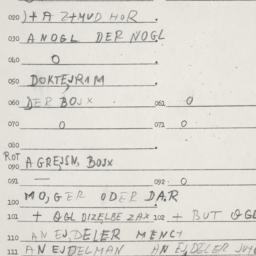 020 )+ A Z+MUD HOR
030 A NOGL DER NOGL
040 O
050 DOKTEJRIM
060 DER BOJX 061 O
070 O 071 O
ROT
080 A GREJSN, BOJX
090
091 — 092 O
100 MO,GER ODER DA,R
101 + QGL DIZELBE ZAX 102 + BUT QGL
110 AN EJDELER MENCH
111 AN EJDELMAN AN EJDELER